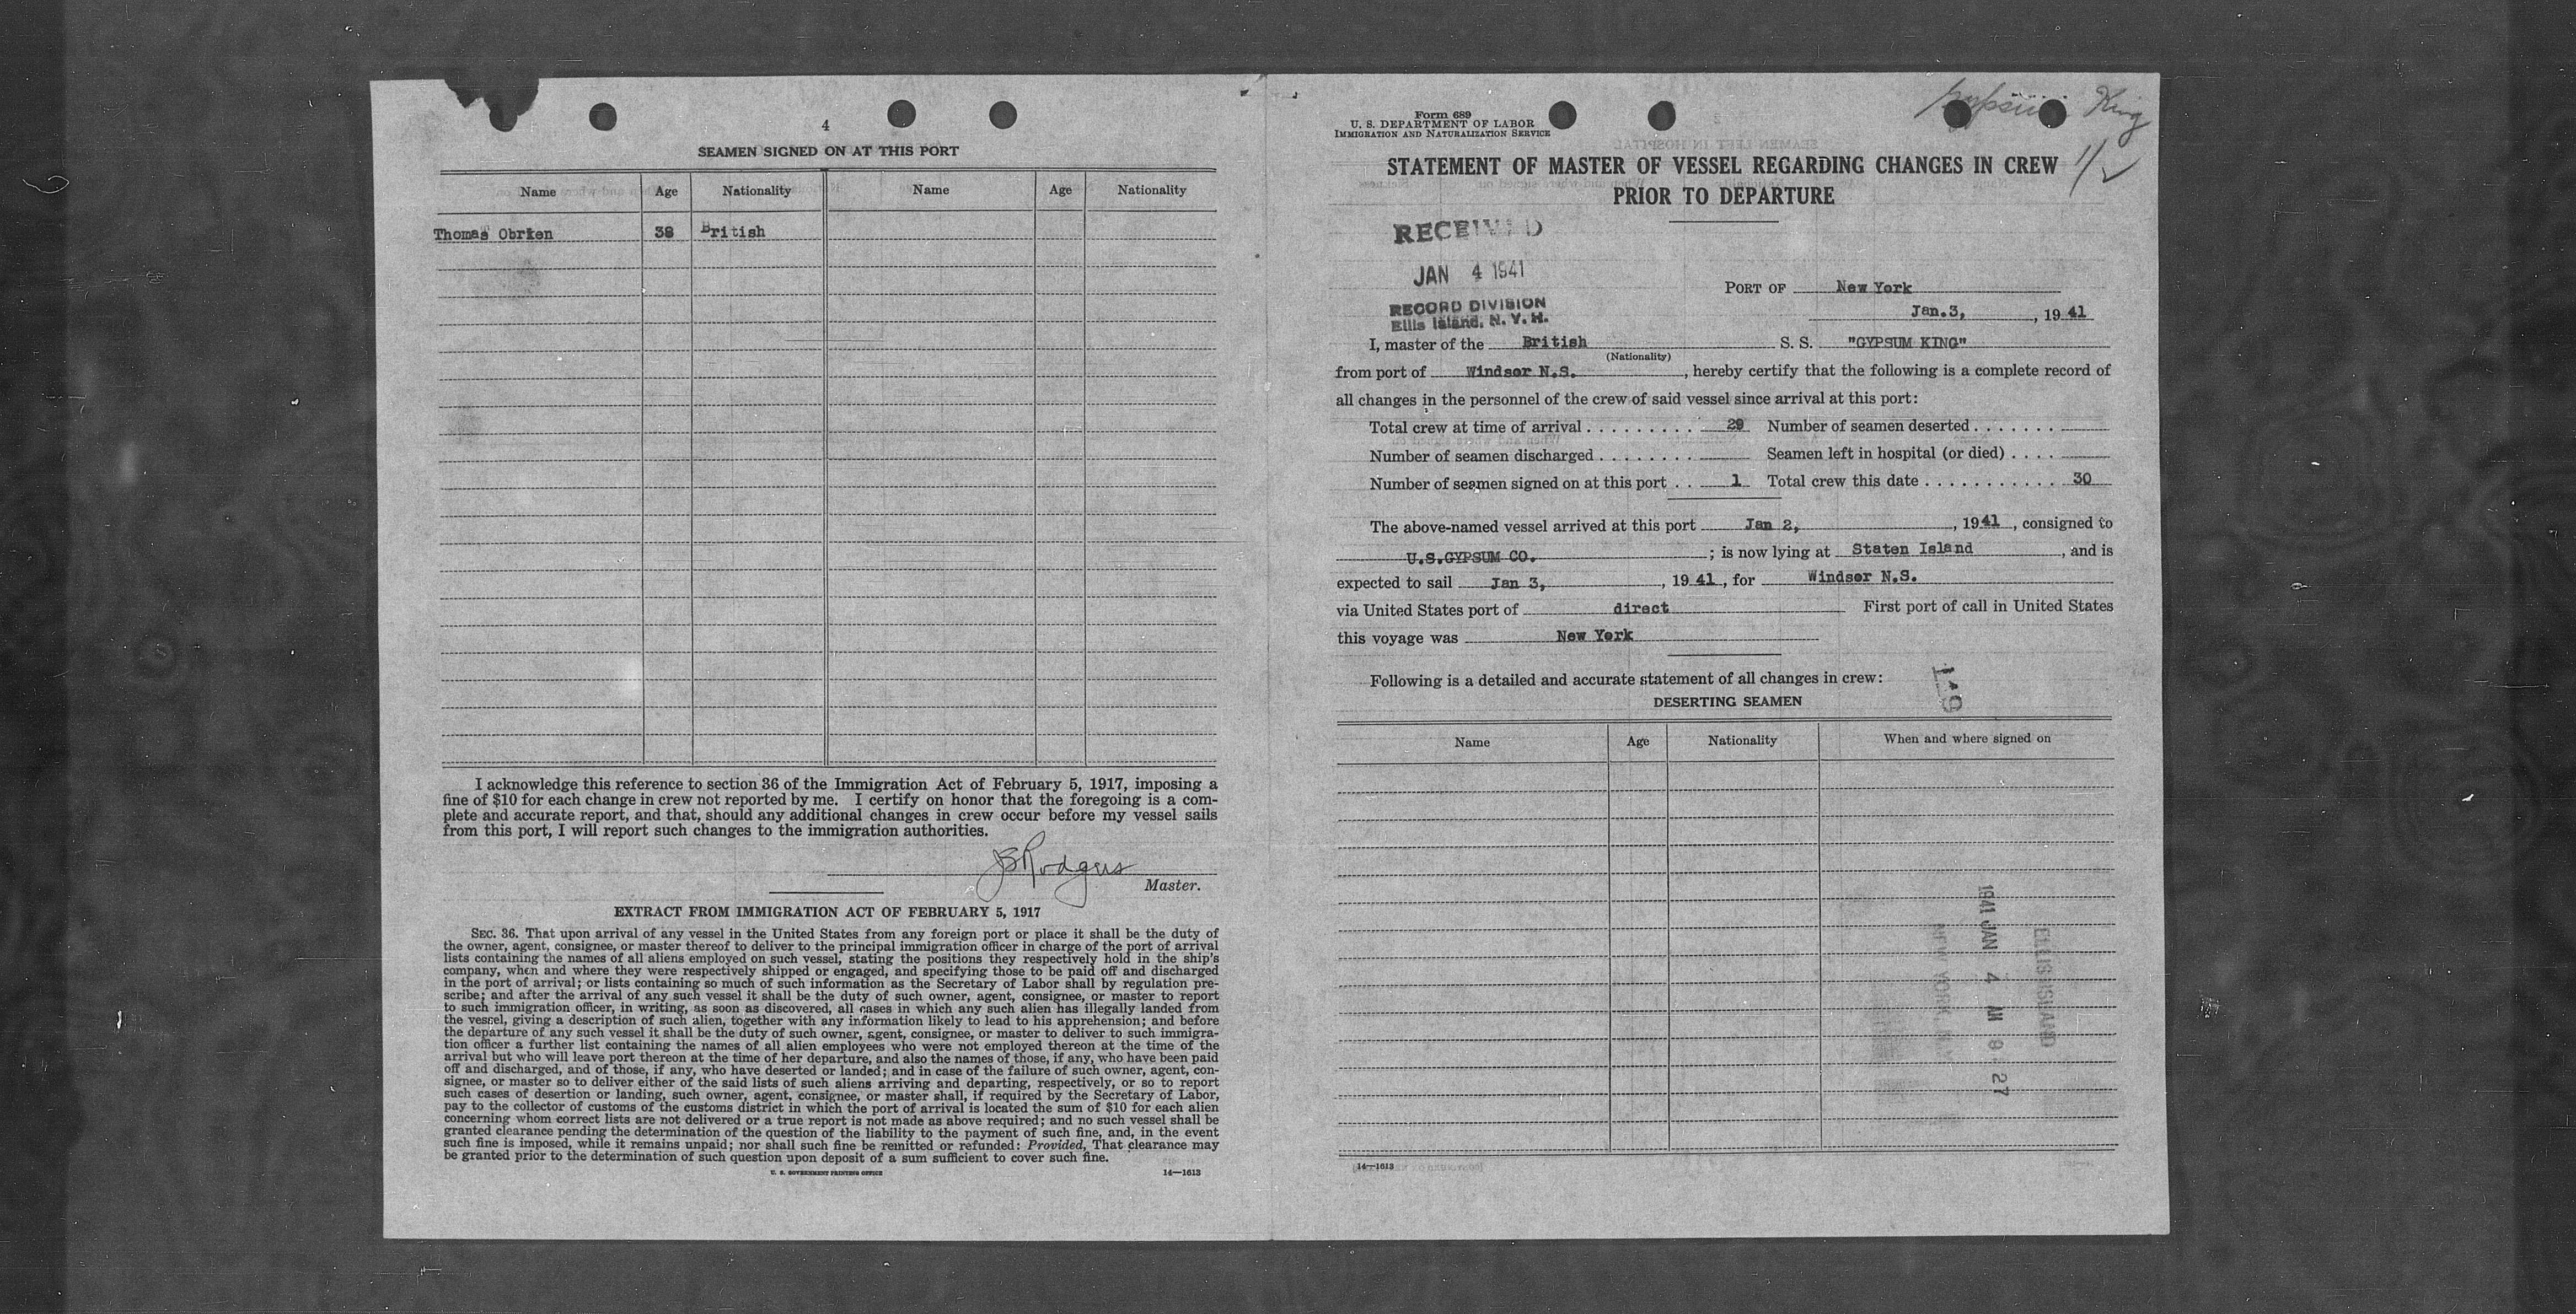 4
SEAMEN SIGNED ON AT THIS PORT
Name Age Nationality Name Age Nationality
Thomas Obrien 38 British
I acknowledge this reference to section 36 of the Immigration Act of February 5, 1917, imposing a
fine of $10 for each change in crew not reported by me. I certify on honor that the foregoing is a com-
plete and accurate report, and that, should any additional changes in crew occur before my vessel sails
from this port, I will report such changes to the immigration authorities.
JBRodgers
Master.
EXTRACT FROM IMMIGRATION ACT OF FEBRUARY 5, 1917
SEC. 36. That upon arrival of any vessel in the United States from any foreign port or place it shall be the duty of
the owner, agent, consignee, or master thereof to deliver to the principal immigration officer in charge of the port of arrival
lists containing the names of all aliens employed on such vessel, stating the positions they respectively hold in the ship's
company, when and where they were respectively shipped or engaged, and specifying those to be paid off and discharged
in the port of arrival; or lists containing so much of such information as the Secretary of Labor shall by regulation pre-
scribe; and after the arrival of any such vessel it shall be the duty of such owner, agent, consignee, or master to report
to such immigration officer, in writing, as soon as discovered, all cases in which any such alien has illegally landed from
the vessel, giving a description of such alien, together with any information likely to lead to his apprehension; and before
the departure of any such vessel it shall be the duty of such owner, agent, consignee, or master to deliver to such immigra-
tion officer a further list containing the names of all alien employees who were not employed thereon at the time of the
arrival but who will leave port thereon at the time of her departure, and also the names of those, if any, who have been paid
off and discharged, and of those, if any, who have deserted or landed; and in case of the failure of such owner, agent, con-
signee, or master so to deliver either of the said lists of such aliens arriving and departing, respectively, or so to report
such cases of desertion or landing, such owner, agent, consignee, or master shall, if required by the Secretary of Labor,
pay to the collector of customs of the customs district in which the port of arrival is located the sum of $10 for each alien
concerning whom correct lists are not delivered or a true report is not made as above required; and no such vessel shall be
granted clearance pending the determination of the question of the liability to the payment of such fine, and, in the event
such fine is imposed, while it remains unpaid; nor shall such fine be remitted or refunded: Provided, That clearance may
be granted prior to the determination of such question upon deposit of a sum sufficient to cover such fine.
U. S. GOVERNMENT PRINTING OFFICE 14—1613
Form 689
U. S. DEPARTMENT OF LABOR
IMMIGRATION AND NATURALIZATION SERVICE
Gypsum King
1/2
STATEMENT OF MASTER OF VESSEL REGARDING CHANGES IN CREW
PRIOR TO DEPARTURE
RECEIVED
JAN 4 1941
RECORD DIVISION
Ellis Island, N. Y. H.
PORT OF New York
Jan.3, , 19 41
I, master of the British S. S. "GYPSUM KING"
(Nationality)
from port of Windsor N.S. , hereby certify that the following is a complete record of
all changes in the personnel of the crew of said vessel since arrival at this port:
Total crew at time of arrival . . . . . . . . . 29 Number of seamen deserted . . . . . . .
Number of seamen discharged . . . . . . . Seamen left in hospital (or died) . . . .
Number of seamen signed on at this port . . 1 Total crew this date . . . . . . . . . . . 30
The above-named vessel arrived at this port Jan 2, , 19 41 , consigned to
U.S.GYPSUM CO. ; is now lying at Staten Island , and is
expected to sail Jan 3, , 19 41 , for Windsor N.S.
via United States port of direct First port of call in United States
this voyage was New York
Following is a detailed and accurate statement of all changes in crew:
149
DESERTING SEAMEN
Name Age Nationality When and where signed on
1941 JAN 4 AM 9 27
ELLIS ISLAND
14—1613